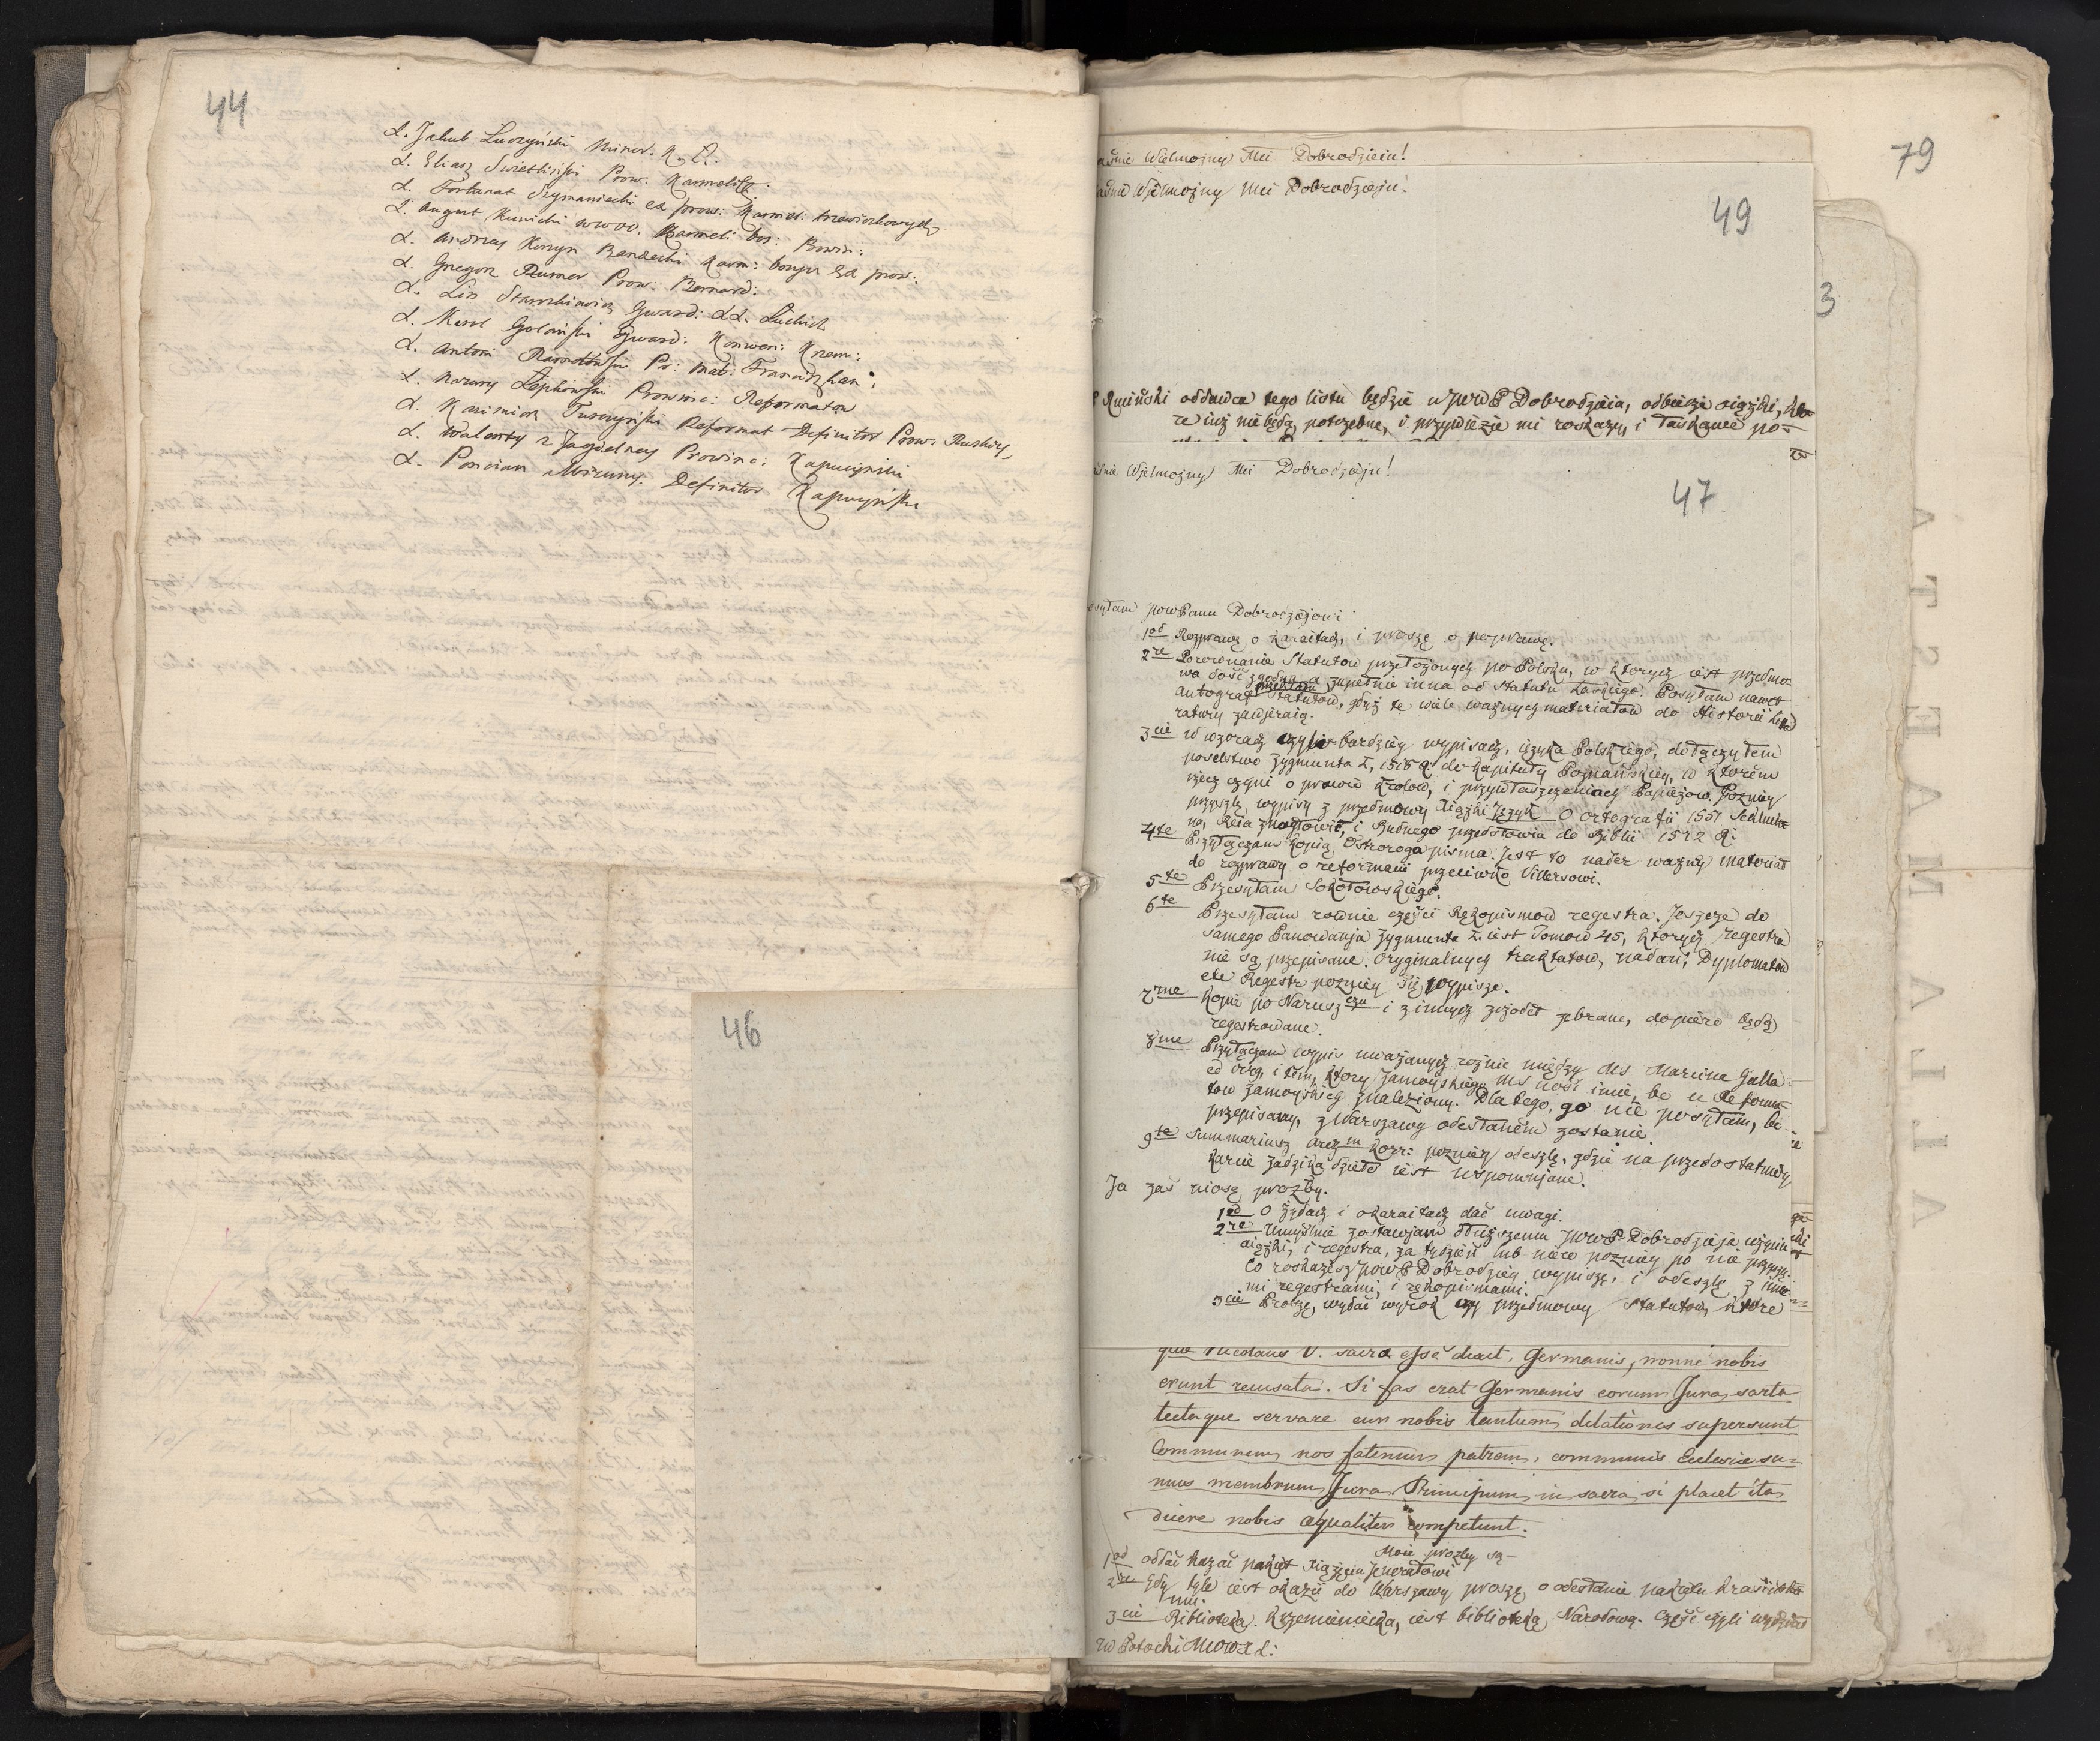 44
X. Jakub Luczyński Minor.
X. Eliasz Swietliński Prow. Karmelit.
X. Fortunat Szymaniecki ex prow: Karmel: trzewiczkowych
X. August Kunicki Karmeli bos: Prowin:
X. Andrzey Korzyn Bandecki Karm: bosych Ex prow.
X. Gregor Rumer Prow: Bernard:
X. Lin Gward:
X. Karol Golański Gward: Konwen: Krzem:
X. Antoni Pr: Franciszkan:
X. Łepkowski Prowinc: Reformatow
X. Kazimierz Turczyński Reformat Definitor Prow: Ruskiey
X. Walenty z Jagielnicy Prowinc: Kapucyński
X. Poncian Definitor Kapucyński
46
79
3
Wielmożny Mci Dobrodzieiu!
Wielmożny Mci Dobrodzieju!
49
oddawca tego listu będzie u JWWP Dobrodzieia, odbierze xiążki,
re iuż nie będą potrzebne, i przywiezie mi roskazy, i łaskawe po=
Wielmożny Mci Dobrodzieju!
47
JWWPanu Dobrodziejowi
1od Rozprawę o Karaitach, i proszę o poprawę.
2re Porownanie Statutow przełożonych po Polsku, w ktorych iest przedmo=
wa dość zgodna a zupełnie inna od Statutu Łaskiego. Posyłam nawet
autograf Statutow, gdyż te wiele ważnych materiałow do Historii
ratury zawieraią.
3cie W wzorach czyli bardziey wypisach, ięzyka Polskiego, dołączyłem
poselstwo Zygmunta I, 1518 R. do Kapituły Poznańskiey, w ktorem
rzecz czyni o prawie Krolow, i przywłaszczeniach Papieżow. Pozniey
przyszlę wypisy z przedmowy xiążki Język O ortografii 1551
na, Reia i Budnego przedsłowia do Biblii 1572 R.
4te Przyłączam Kopią Ostroroga pisma. Jest to nader ważny materiał
do rozprawy o reformacii przeciwko Villersowi.
5te Przesyłam Sokołowskiego.
6te Przesyłam rownie części Rękopismow regestra. Jeszcze do
samego Panowania Zygmunta I. iest Tomow 45, ktorych regestra
nie są przepisane. Oryginalnych traktatow, nadań, Dyplomatow
etc Regestr pozniey się wypisze.
7me Kopie po Narusz czu i z innych źrzodeł zebrane, dopiero będą
regestrowane.
8me Przyłączam wypis uważanych rożnic między Ms Marcina Galla
ed i tem, ktory Zamoyskiego MS nosi imie, bo u Reforma=
tow Zamoyskich znaleziony. Dlatego, go nie posyłam, bo
przepisany, z Warszawy odesłanem zostanie.
9te Summariusz Korr: pozniey odeszlę, gdzie na przedostatniey
karcie Zadzika dzieło iest wspomnjane.
Ja zaś niosę prozby.
1od O Żydach i okaraitach dać uwagi.
2re Umyślnie zostawjam JWWP Dobrodzieja
xiążki, i regestra, za tydzień lub nieco pozniey po nie przyszlę.
Co roskażesz JWWP Dobrodziey wypiszę, i odeszlę z
mi regestrami, i rękopismami.
3cie Proszę, wydać wyrok czy przedmowy statutow, ktore
que Nicolaus V. sacra esse dixit, Germanis, nonne nobis
erunt recusata. Si fas erat Germanis eorum Jura, sarta
tectaque servare cur nobis tantum delationes supersunt
Communem nos fatemur patrem, communis Ecclesiae su=
mus membrum Jura Principum in sacra si placet ita
dicere nobis aequaliter competunt.
Moie prozby są—
1od oddać kazać pakiet Xiążęcia Jenerałowi
2re Gdy tyle iest okazii do Warszawy proszę o odesłanie pakietu
mu.
3cie Biblioteka Krzemieniecka, iest biblioteką Narodową. Część czyli